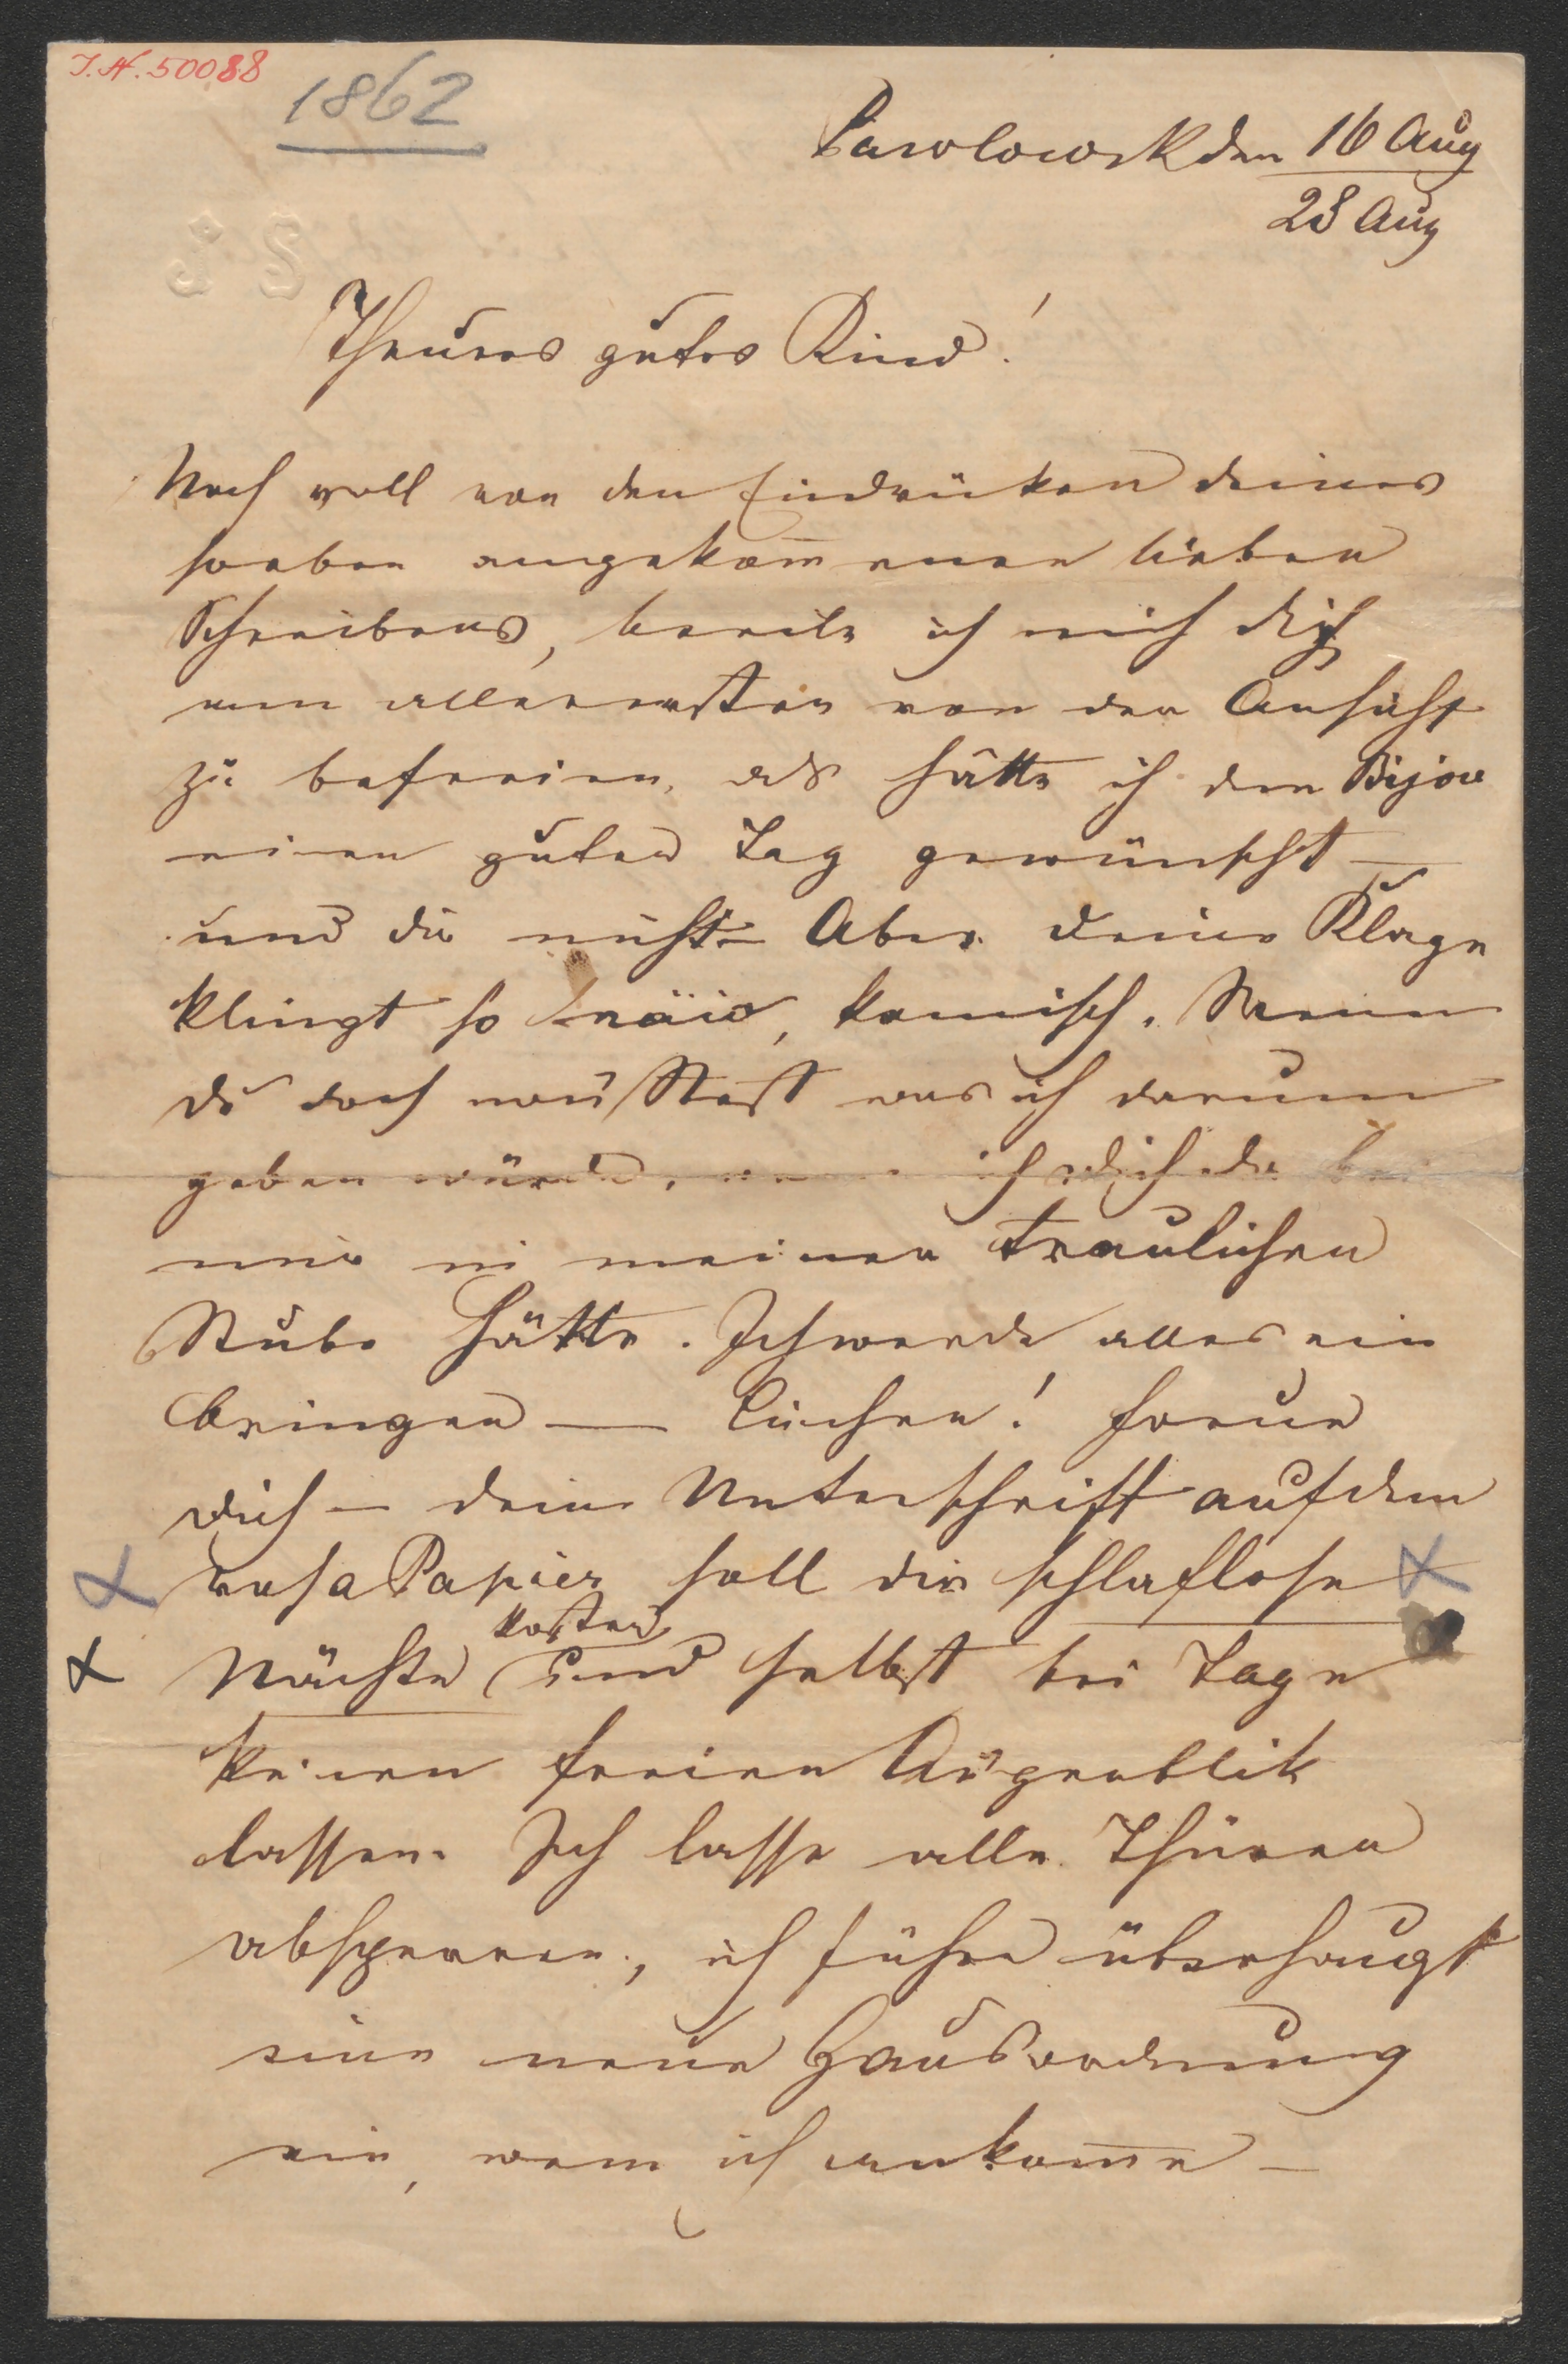 I.N. 50088
1862
Pawlowsk den 16 Aug
28 Aug
Theures gutes Kind!
Noch voll von den Eindrücken deines
soeben angekom̅enen lieben
Schreibens, beeile ich mich dich
am allerersten von der Ansicht
zu befreien, als hätte ich dem Bijou
einen guten Tag gewünscht —
und dir nicht — Aber deine Klage
klingt so näiv, komisch. Wenn
du doch wüsstest was ich darum
geben würde, wenn ich dich da bei
mir in meiner traulichen
Stube hätte. Ich werde alles ein
bringen — Linchen! freue
dich — deine Unterschrift auf dem
rosa Papier soll dir schlaflose
kosten
Nächte und selbst bei Tage
keinen freien Augenblik
lassen. Ich lasse alle Thüren
absperren, ich führe überhaupt
eine neue Hausordnung
ein, wenn ich ankom̅e —